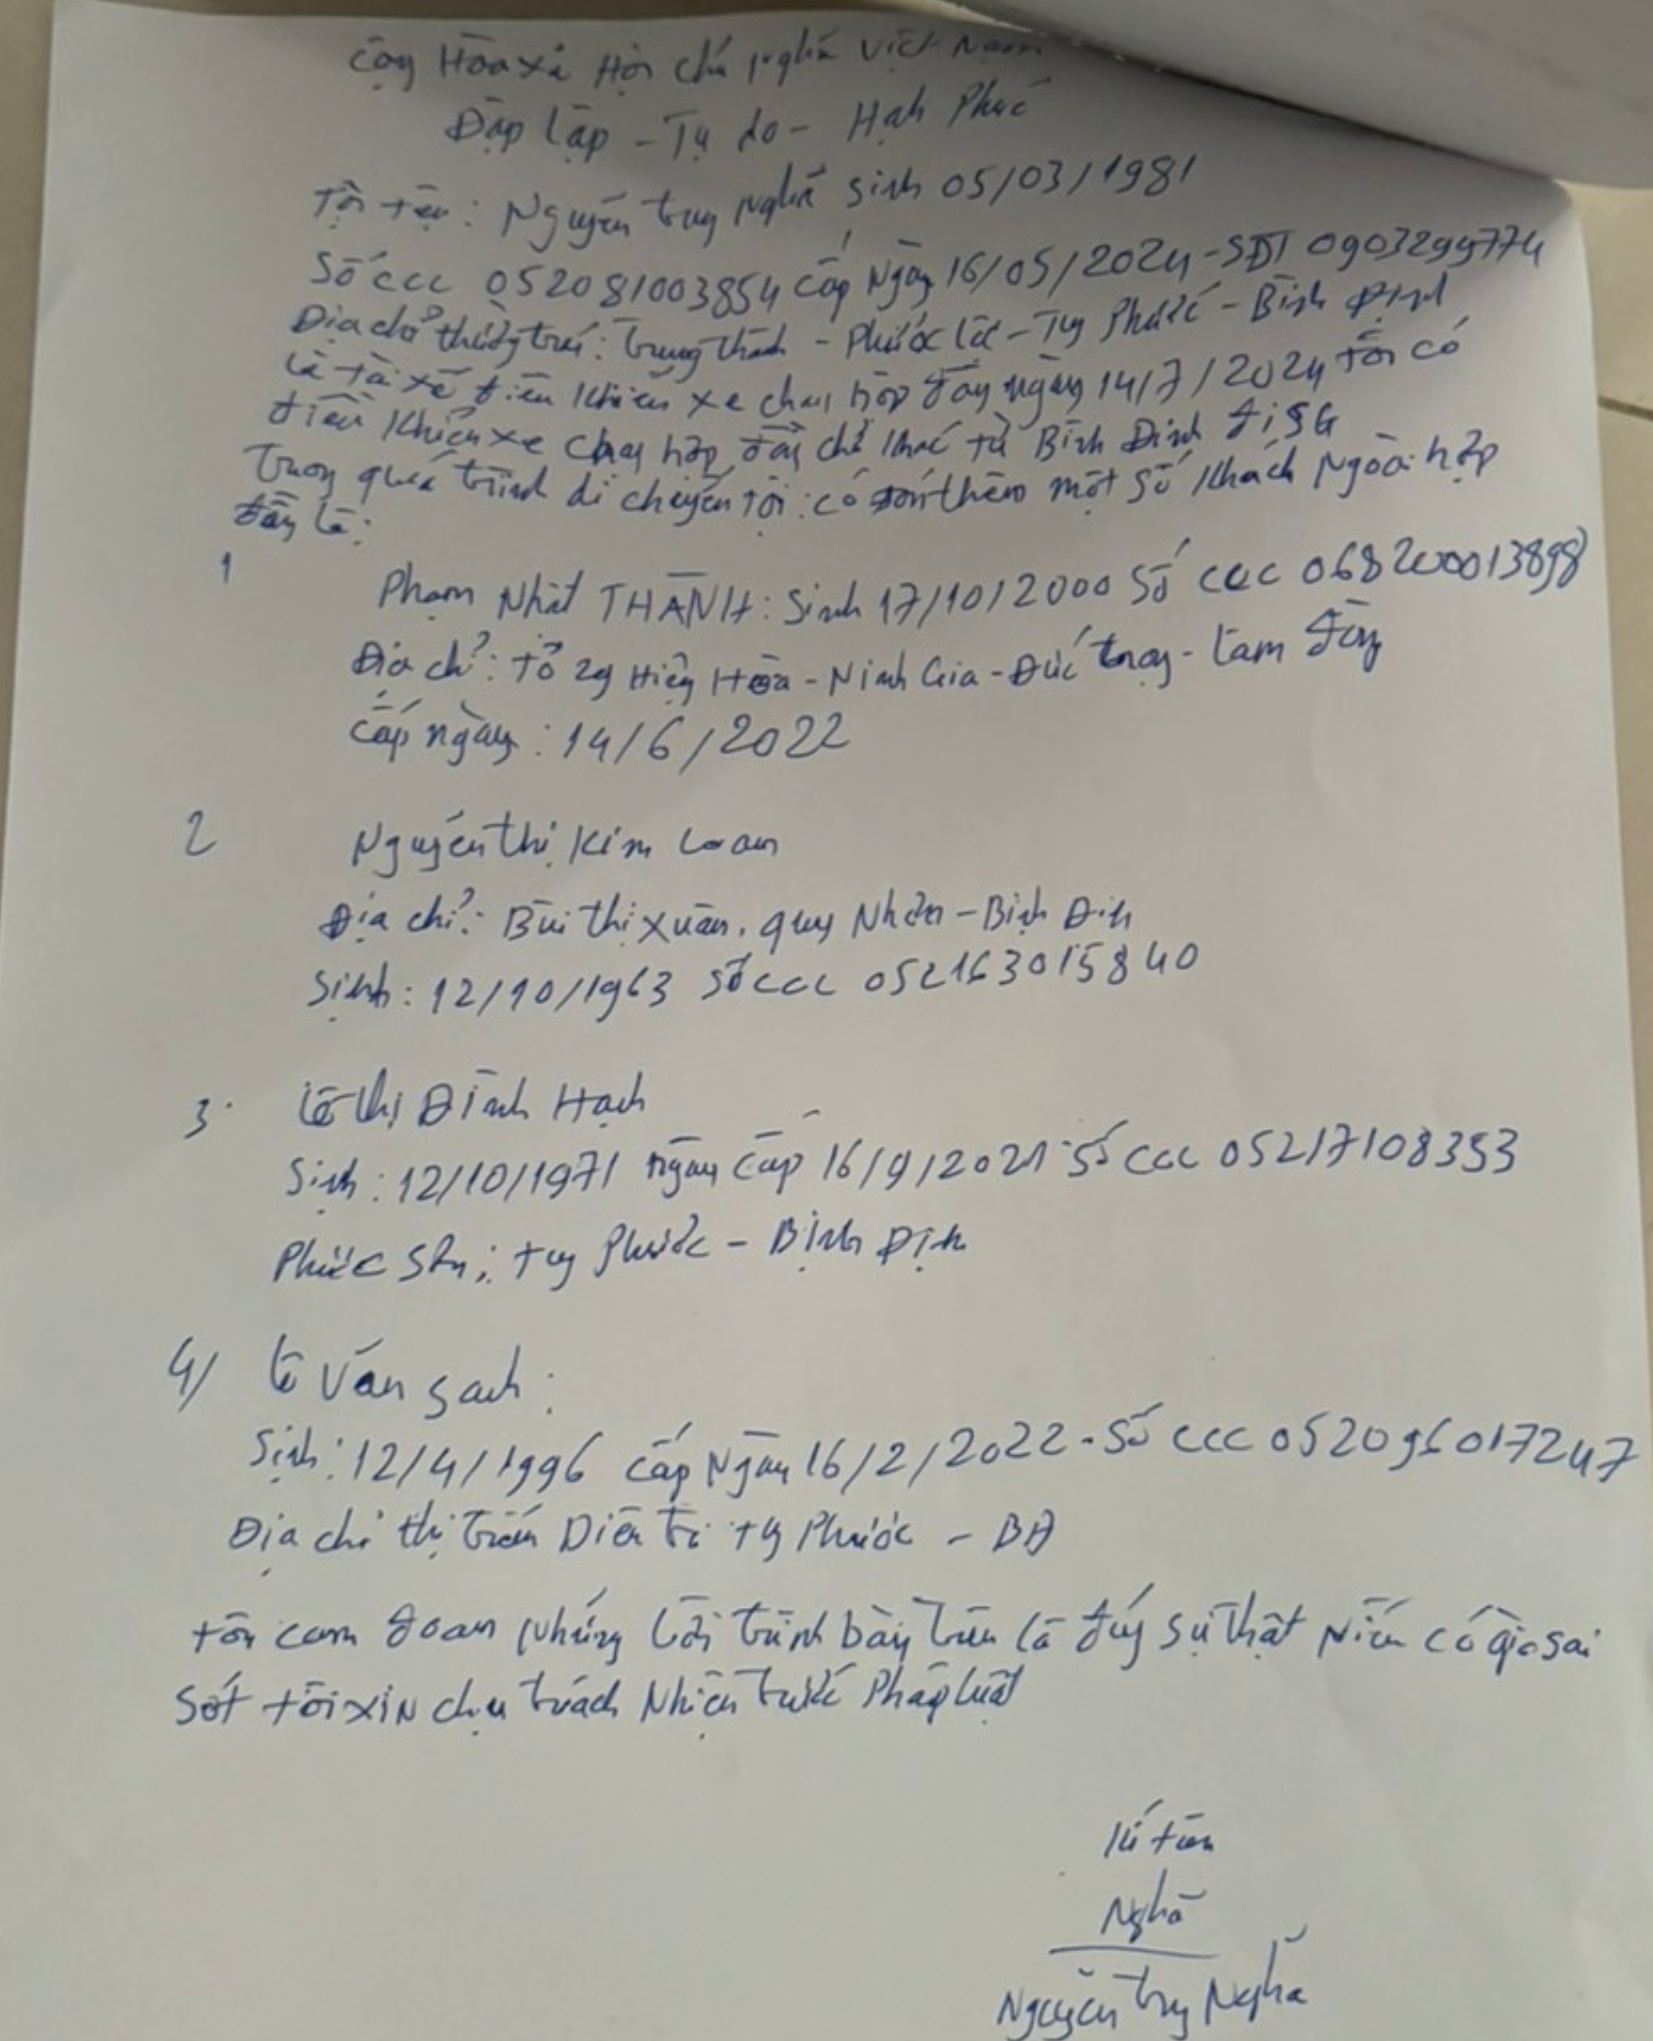 Cộng Hòa xã Hội chủ nghĩa Việt Nam
Độc lập - Tự do - Hạnh Phúc
Tôi tên: Nguyễn trung Nghĩa sinh 05/03/1981
Số ccc 052081003854 cấp Ngày 16/05/2024 - SĐT 0903299774
Địa chỉ thường trú: trung thành - Phước lộc - Tuy Phước - Bình Định
là tài xế điều khiển xe chạy hợp đồng ngày 14/7/2024 tôi có
điều khiển xe chạy hợp đồng chở khác từ Bình Định đi SG
Trong quá trình di chuyển tôi có đón thêm một số khách Ngoài hợp
đồng là:
1 Phạm Nhật THÀNH: Sinh 17/10/2000 Số ccc 068200013898
Địa chỉ: tổ 29 Hiệp Hòa - Ninh Gia - Đức trọng - lâm đồng
cấp ngày: 14/6/2022
2 Nguyễn thị Kim Loan
Địa chỉ: Bùi thị xuân, quy Nhơn - Bình Định
Sinh: 12/10/1963 số ccc 052163015840
3. Lê thị Đình Hạnh
Sinh: 12/10/1971 ngày cấp 16/9/2021 Số ccc 05217108353
Phước Sơn; tuy Phước - Bình Định
4/ Lê Văn Sanh:
Sinh: 12/4/1996 cấp Ngày 16/2/2022 - Số ccc 052096017247
Địa chỉ thị trấn Diêu trì ty Phước - BĐ
tôi cam đoan những lời trình bày trên là đúng sự thật Nếu có gì sai
sót tôi xin chịu trách Nhiệm trước Pháp luật
Kí tên
Nghĩa
Nguyễn trung Nghĩa